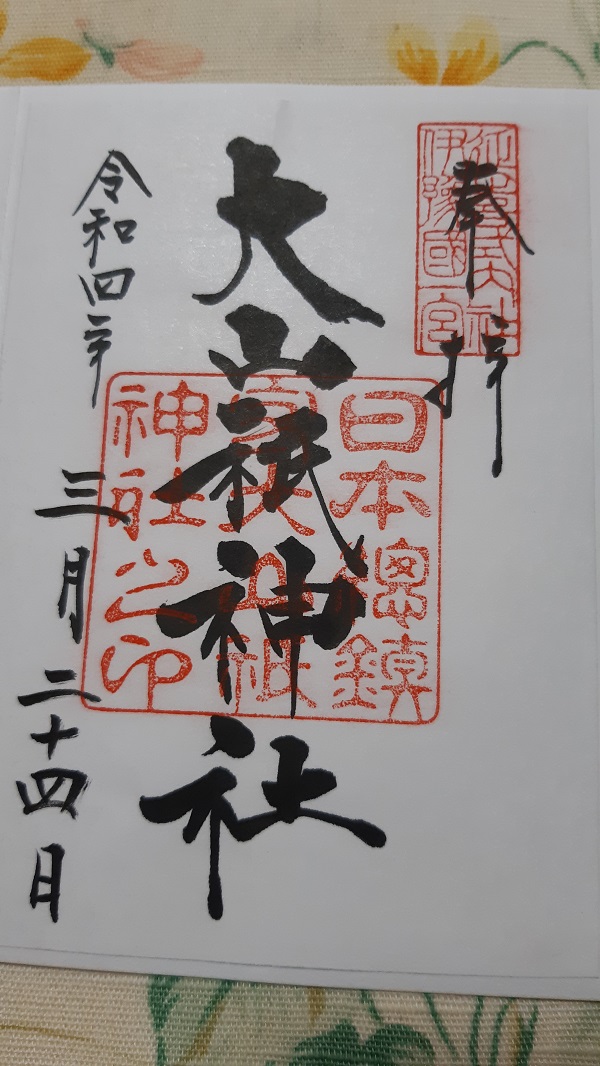 奉拝
延喜式内社
伊豫國一宮
大山祇神社
日本總鎮
守大山祇
神社之印
令和四年
三月二十四日